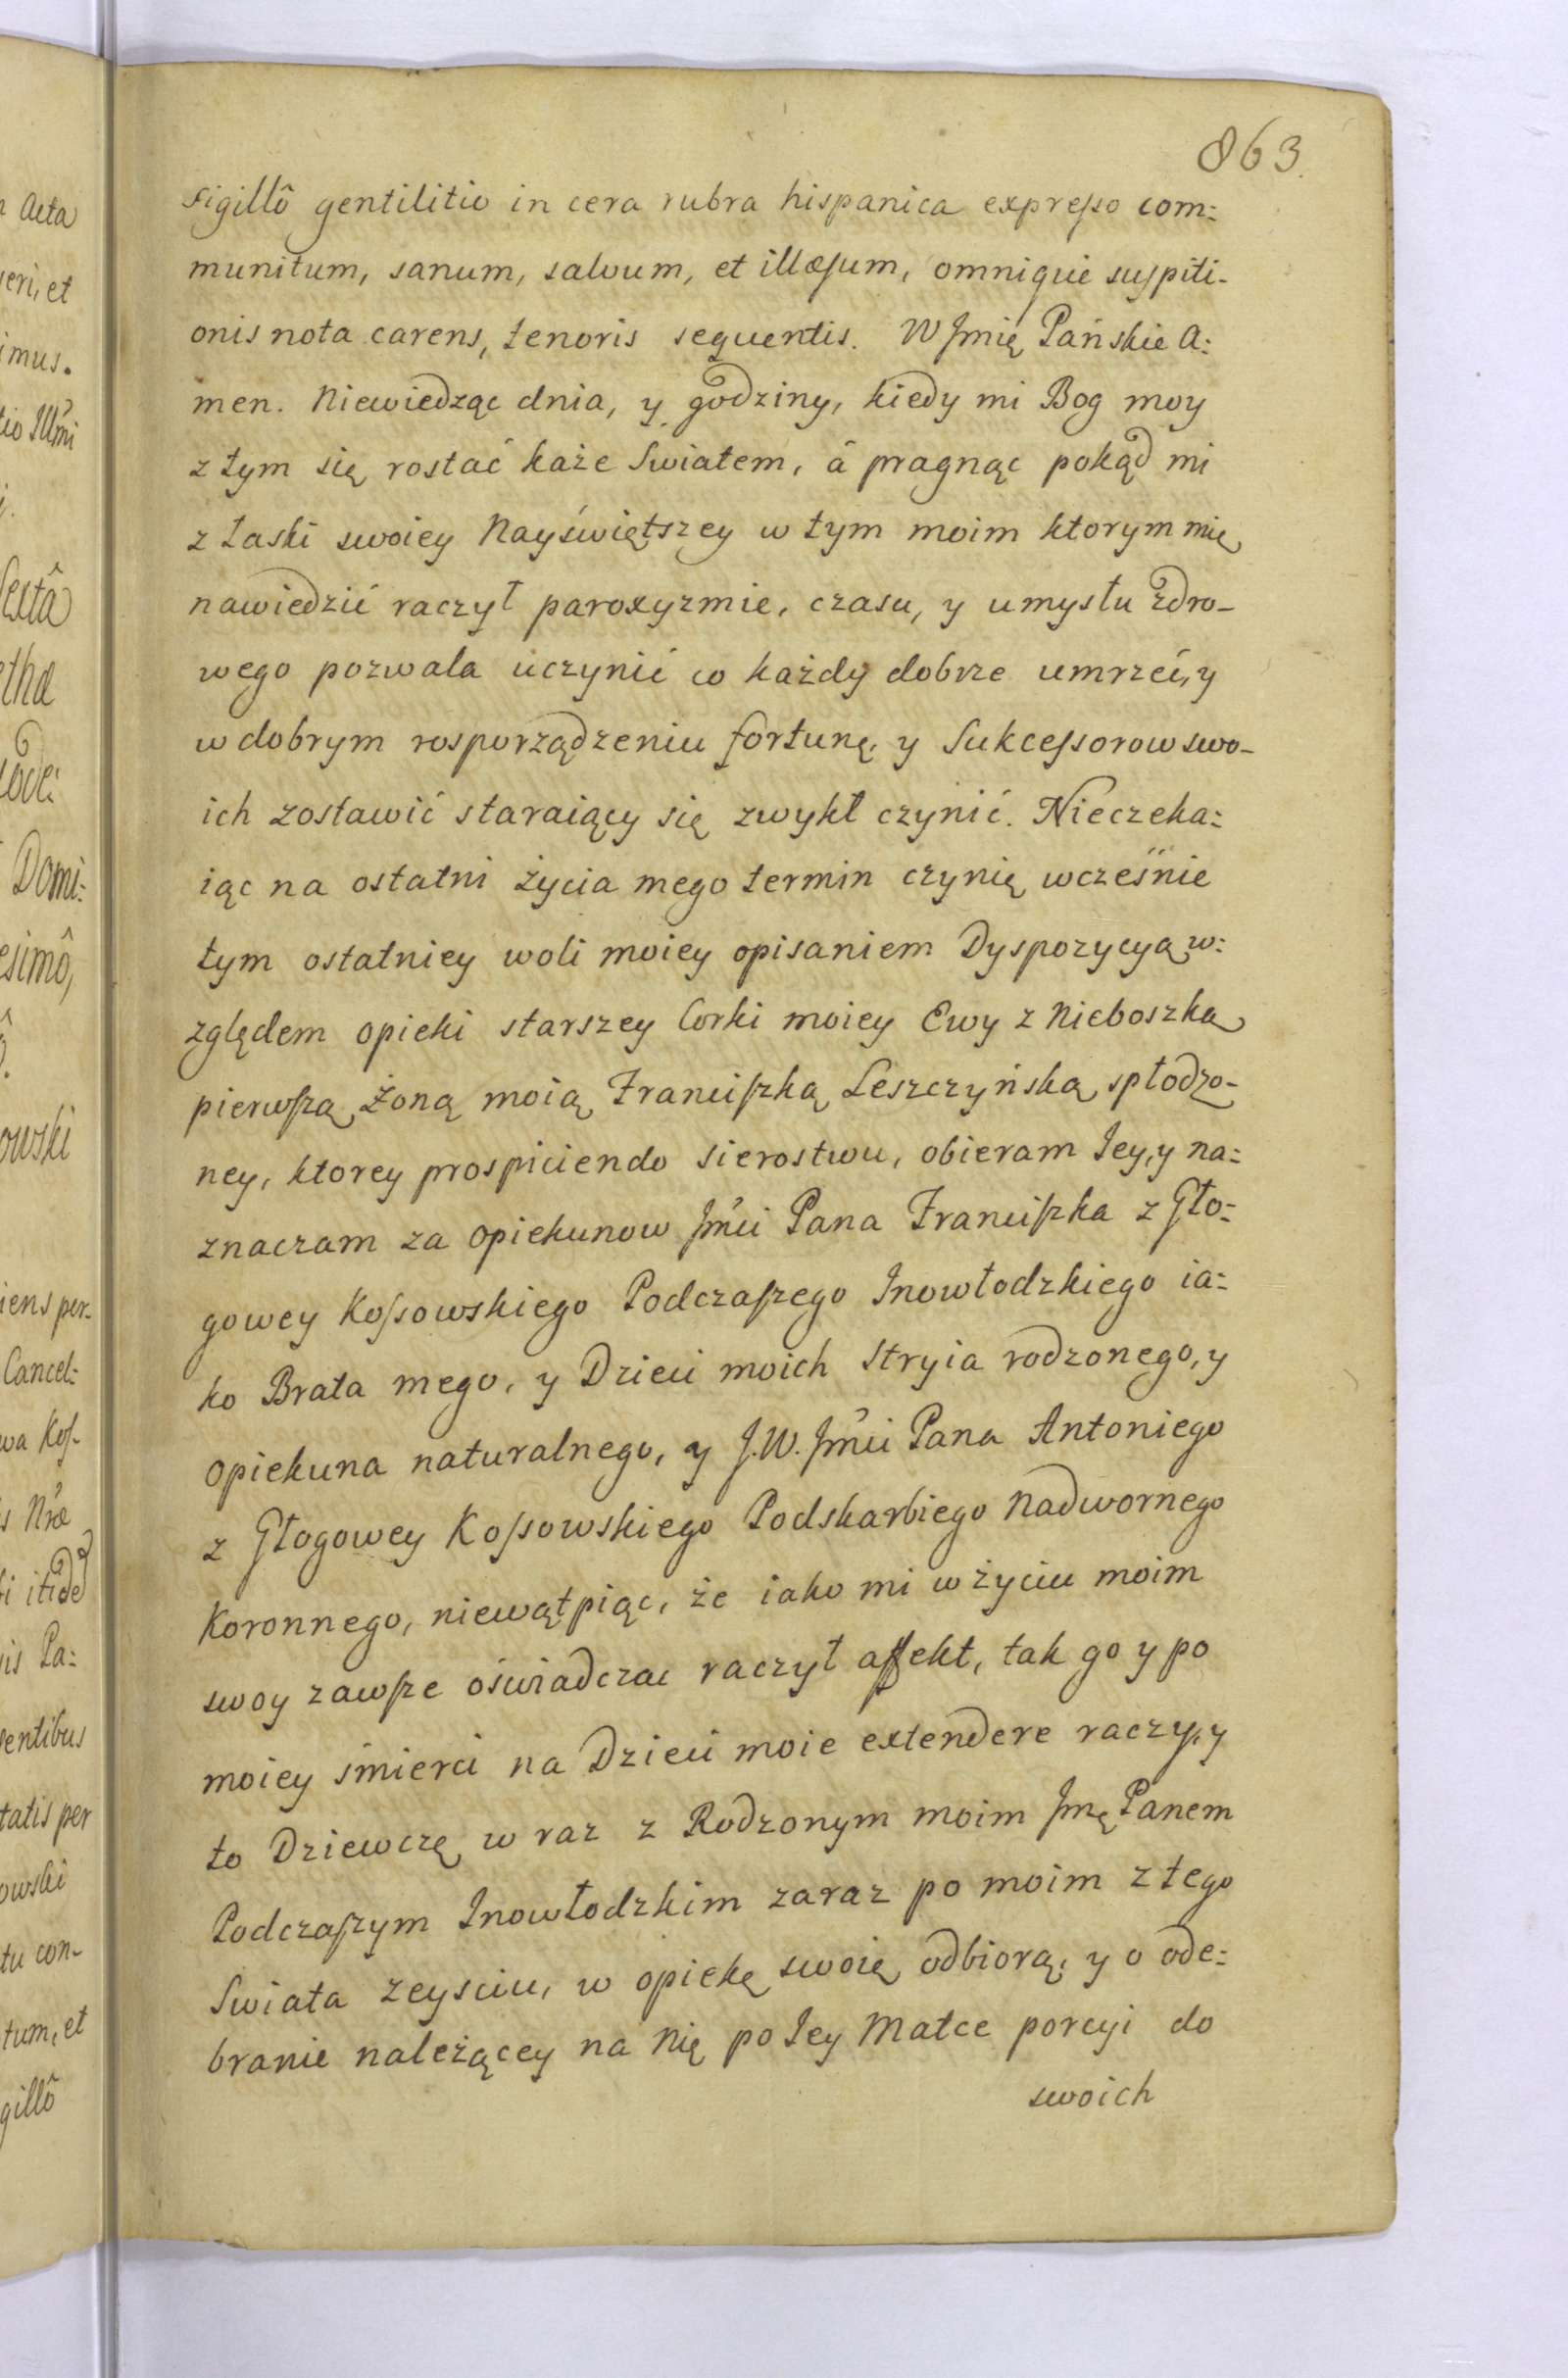 863.
sigillô gentilitio in cera rubra hispanica expresso com:
munitum, sanum, salvum, et illæsum, omnique suspiti-
onis nota carens, tenoris sequentis. W Jmię Pańskie A:
men. Niewiedząc dnia, y godziny, kiedy mi Bog moy
z tym się rostać każe Swiatem, á pragnąc pokąd mi
z łaski swoiey Nayświętszey w tym moim ktorym mię
nawiedzić raczył paroxyzmie, czasu, y umysłu zdro-
wego pozwala uczynić co każdy dobrze umrzeć, y
w dobrym rosporządzeniu fortunę, y Sukcessorow swo-
ich zostawić staraiący się zwykł czynić. Nieczeka:
iąc na ostatni życia mego termin czynię wcześnie
tym ostatniey woli moiey opisaniem Dyspozycyą w:
zględem opieki starszey Corki moiey Ewy z Nieboszką
pierwszą Żoną moią Franciszką Leszczyńską spłodzo-
ney, ktorey prospiciendo sierostwu, obieram Jey, y na:
znaczam za Opiekunow Jm̃ci Pana Franciszka z Gło:
gowey Kossowskiego Podczaszego Jnowłodzkiego ia:
ko Brata mego, y Dzieci moich Stryia rodzonego, y
Opiekuna naturalnego, y J. W. Jm̃ci Pana Antoniego
z Głogowey Kossowskiego Podskarbiego Nadwornego
Koronnego, niewątpiąc, że iako mi w życiu moim
swoy zawsze oświadczac raczył affekt, tak go y po
moiey śmierci na Dzieci moie extendere raczy, y
to Dziewczę w raz z Rodzonym moim Jmę Panem
Podczaszym Jnowłodzkim zaraz po moim z tego
Swiata zeysciu, w opiekę swoię odbiorą, y o ode:
branie należącey na Nię po Jey Matce porcyi do
swoich